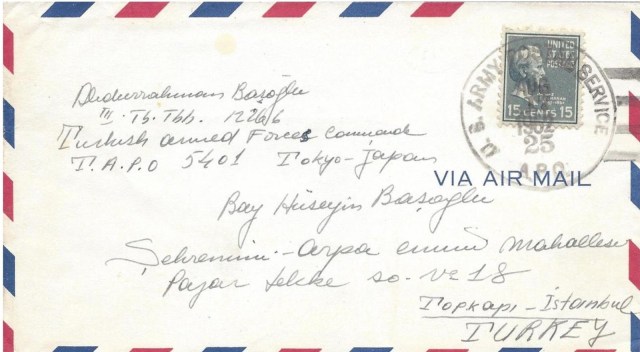 Abdurrahman Başoğlu
III. Tb. Tbb. 17266
Turkish Armed Forces Commande
T.A.P.O 5401 Tokyo-Japan
UNITED
STATES
POSTAGE
15 CENTS 15
U.S. ARMY SERVICE
25
A.P.O.
VIA AIR MAIL
Bay Hüseyin Başoğlu
Şehremini - arpa emini Mahallesi
Pazar tekke so. No 18
Topkapı - İstanbul
TURKEY